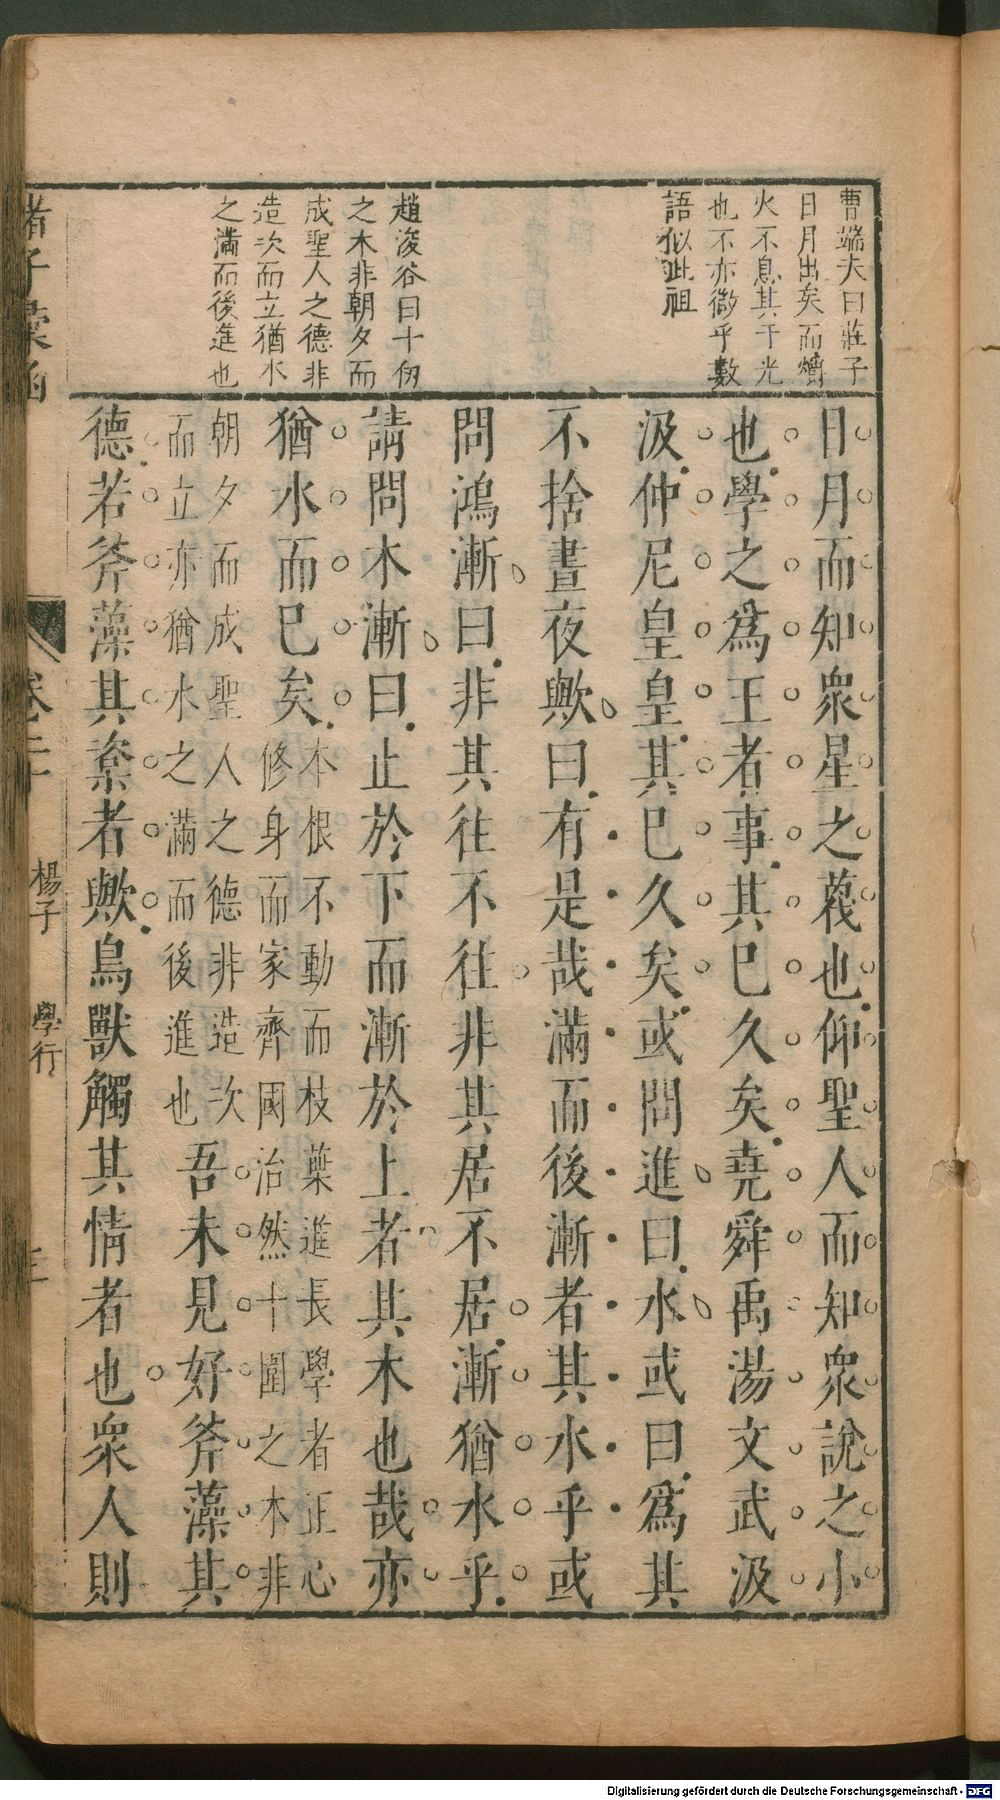 曹端夫曰莊子
日月出矣而爝
火不息其于光
也不亦微乎數
語似此祖
趙浚谷曰十仞
之木非朝夕而
成聖人之德非
造次而立猶水
之滿而後進也
日月而知衆星之蔑也仰聖人而知衆說之小
也學之爲王者事其已久矣堯舜禹湯文武汲
汲仲尼皇皇其已久矣或問進曰水或曰爲其
不捨晝夜歟曰有是哉滿而後漸者其水乎或
問鴻漸曰非其往不往非其居不居漸猶水乎
請問木漸曰止於下而漸於上者其木也哉亦
猶水而已矣
本根不動而枝葉進長學者正心
修身而家齊國治然十圍之木非
朝夕而成聖人之德非造次
而立亦猶水之滿而後進也
吾未見好斧藻其
德若斧藻其楶者歟鳥獸觸其情者也衆人則
諸子彙函
楊子
學行
Digitalisierung gefördert durch die Deutsche Forschungsgemeinschaft - DFG